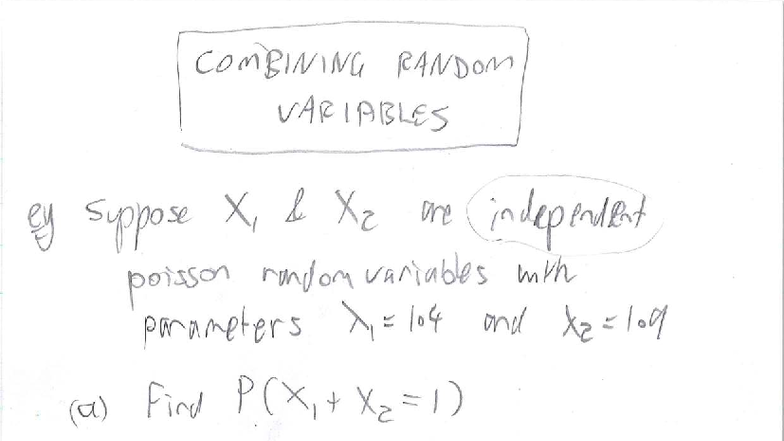 COMBINING RANDOM
VARIABLES
eg Suppose X₁ & X₂ are independent
poisson random variables with
parameters λ₁ = 1.4 and λ₂ = 1.9
(a) Find P(X₁ + X₂ = 1)